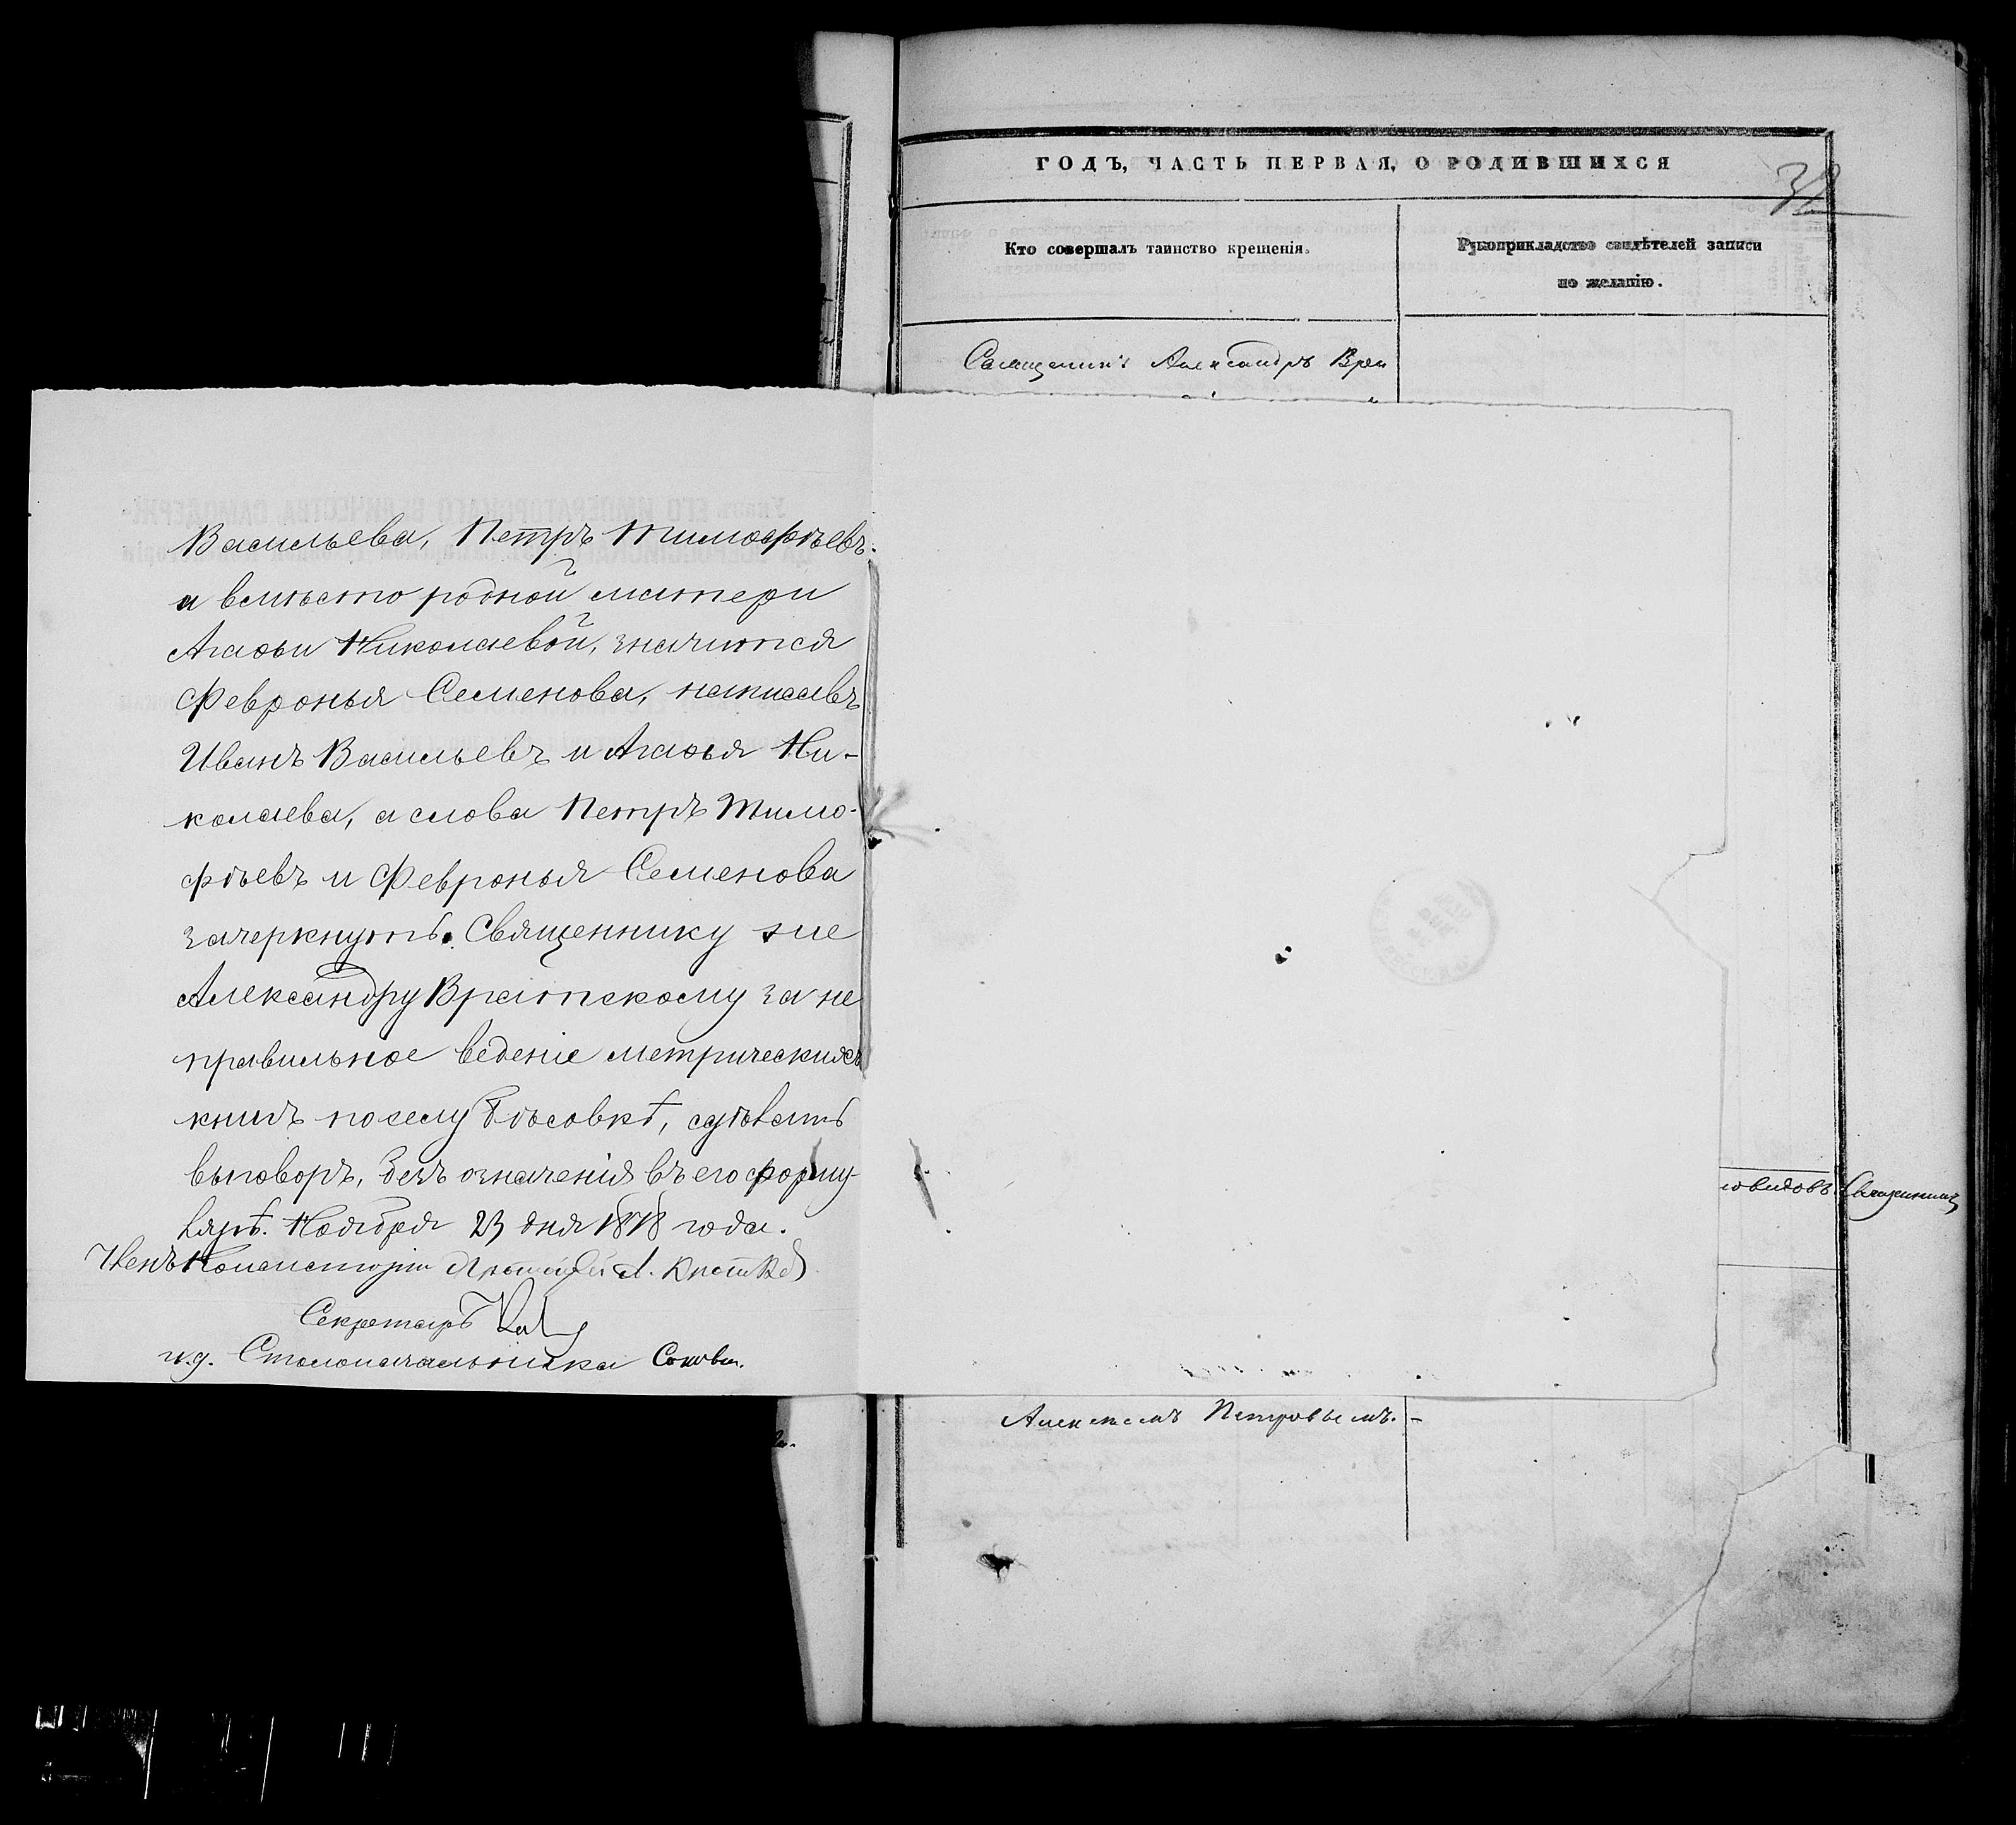 ГОДЪ, ЧАСТЬ ПЕРВАЯ, О РОДИВШИХСЯ
Кто совершалъ таинство крещенія.
Рукоприкладство свидѣтелей записи
по желанію.
Священникъ Александръ Врат
Васильева, Петръ Тимофѣевъ.
и вмѣсто родной матери
Агафьи Николаевой, значится
Февронья Семенова, написавъ
Иванъ Васильевъ и Агафья Ни-
колаева, а слова Петръ Тимо-
фѣевъ и Февронья Семенова
зачеркнуть. Священнику же
Александру Вратскому за не
правильное веденіе метрическихъ
книгъ по селу Бѣсовкѣ, сдѣлать
выговоръ, безъ означенія въ его форму-
лярѣ. Ноября 23 дня 1878 года.
Членъ Консисторіи
Секретарь
и.д. Столоначальника
Священникъ
Алексѣемъ Петровымъ.